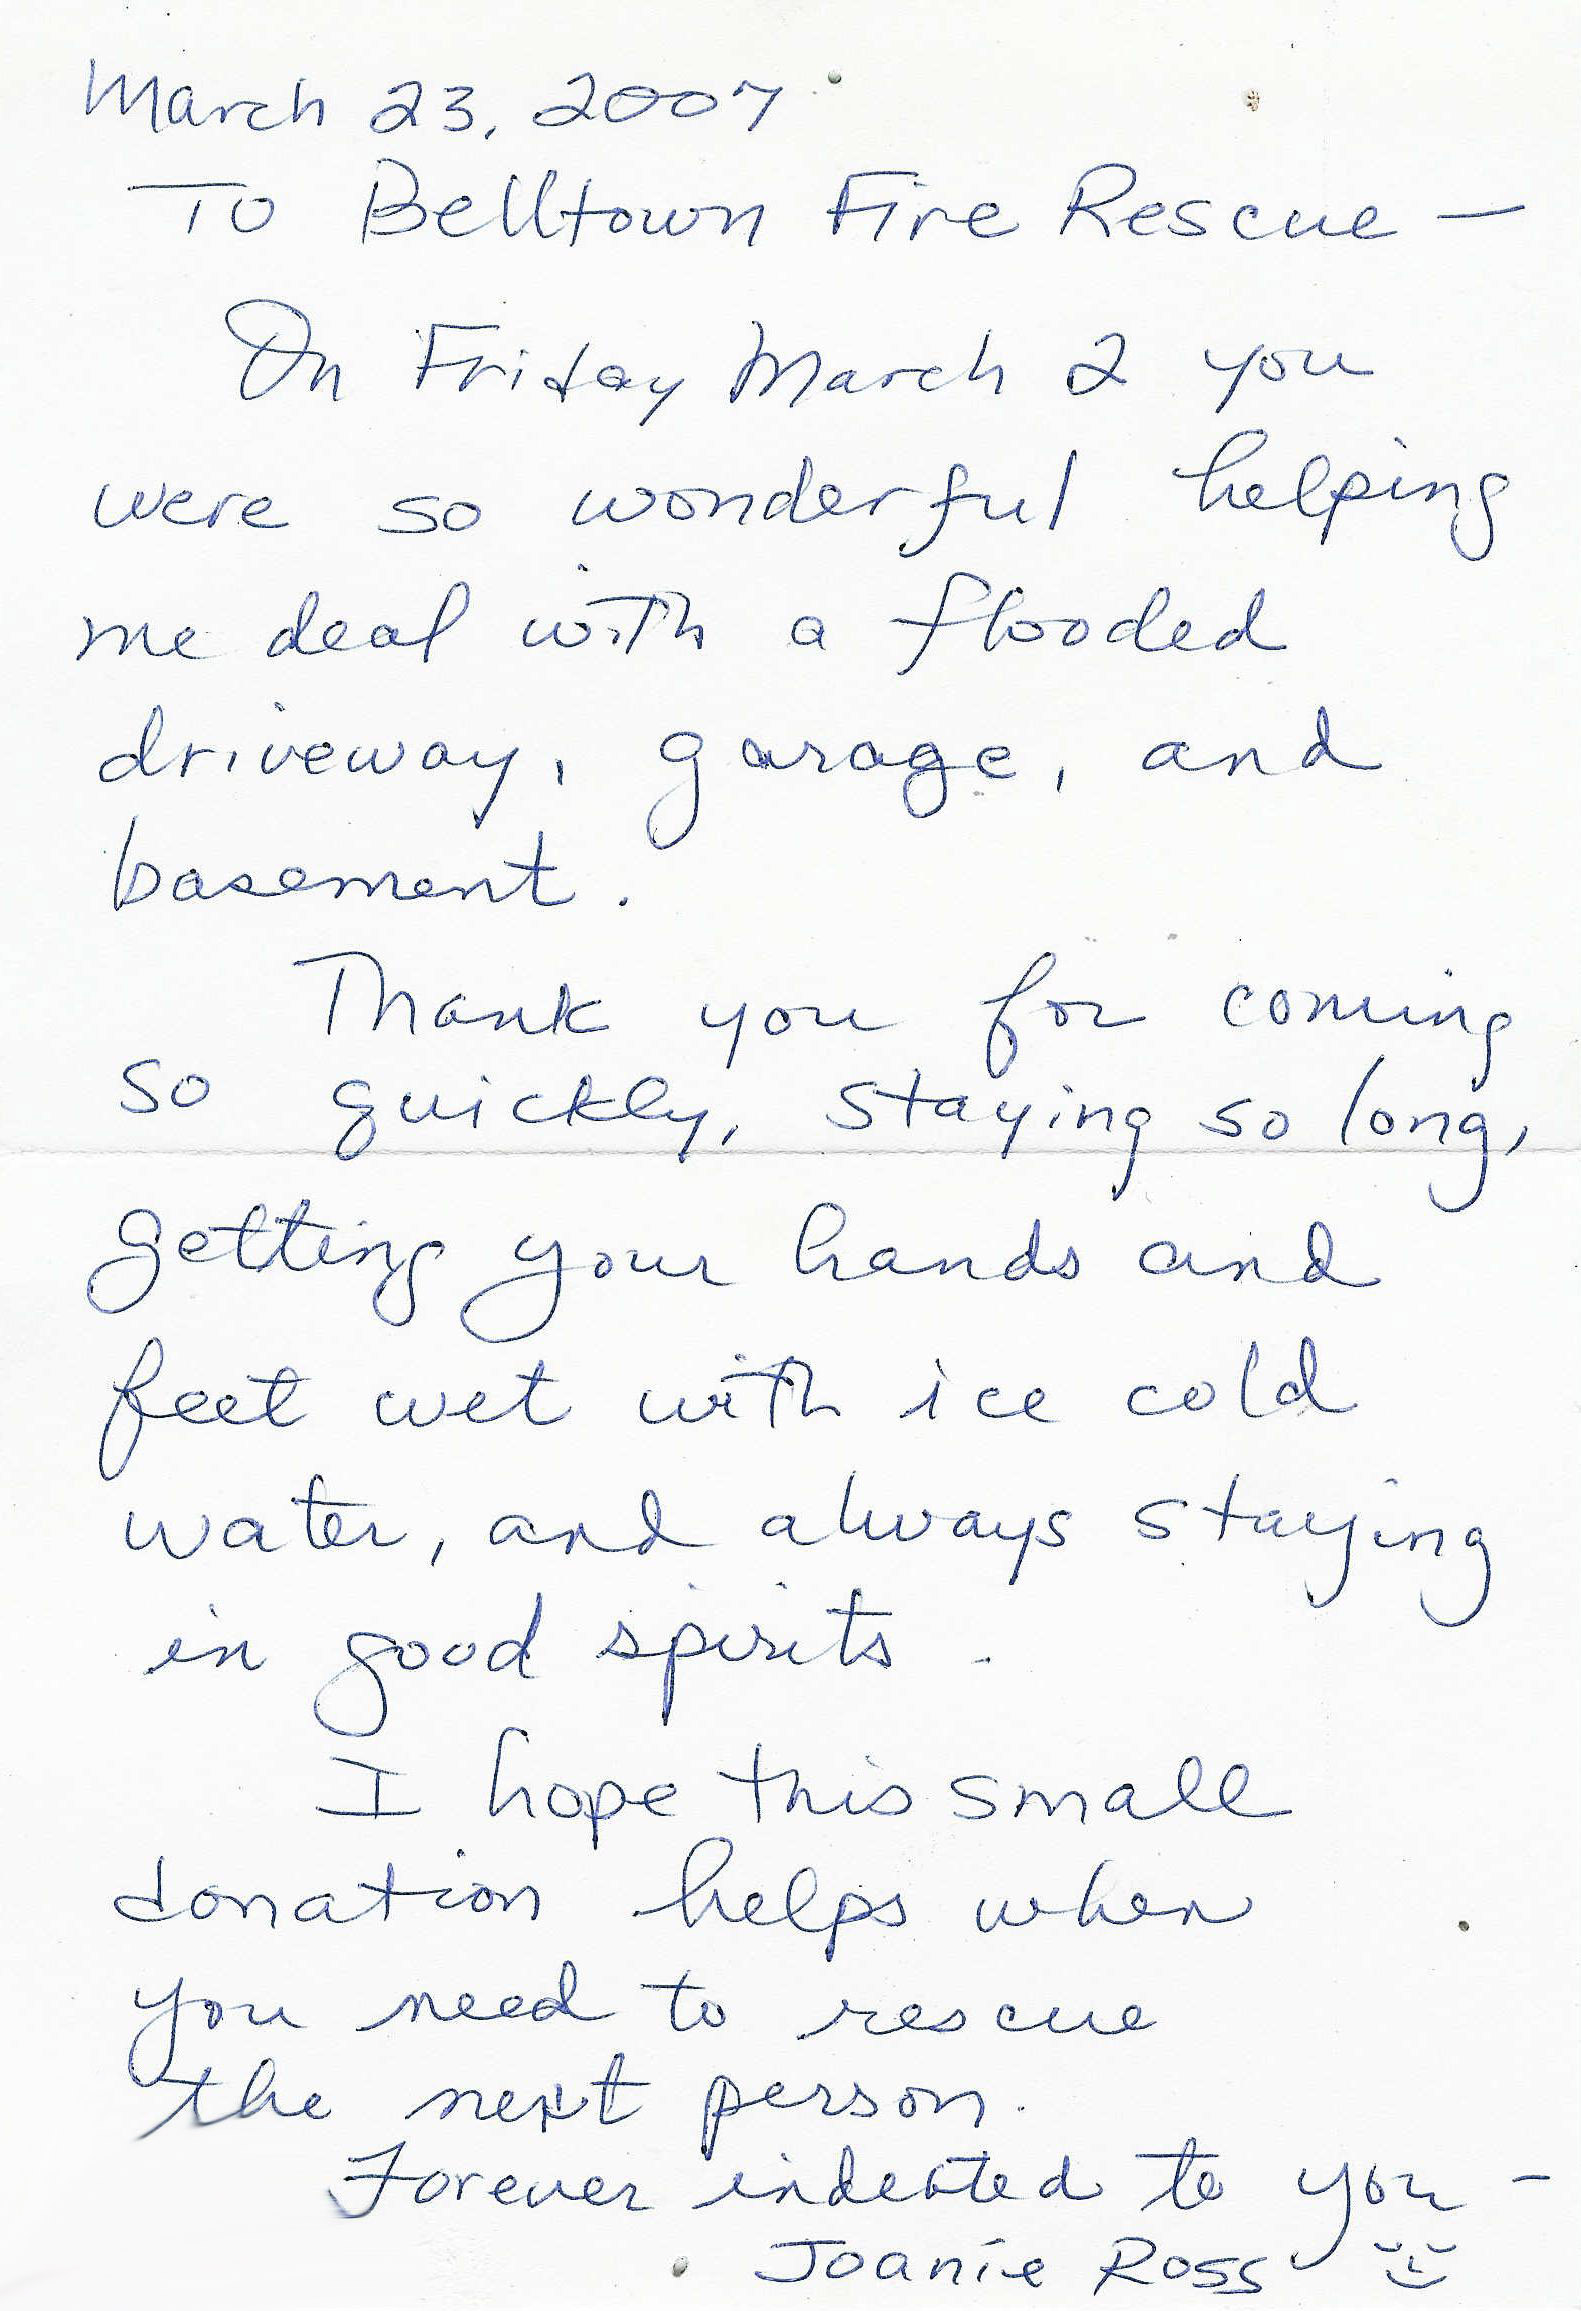 March 23, 2007
To Belltown Fire Rescue —
On Friday March 2 you
were so wonderful helping
me deal with a flooded
driveway, garage, and
basement.
Thank you for coming
so quickly, staying so long,
getting your hands and
feet wet with ice cold
water, and always staying
in good spirits.
I hope this small
donation helps when
you need to rescue
the next person.
Forever indebted to you –
Joanie Ross